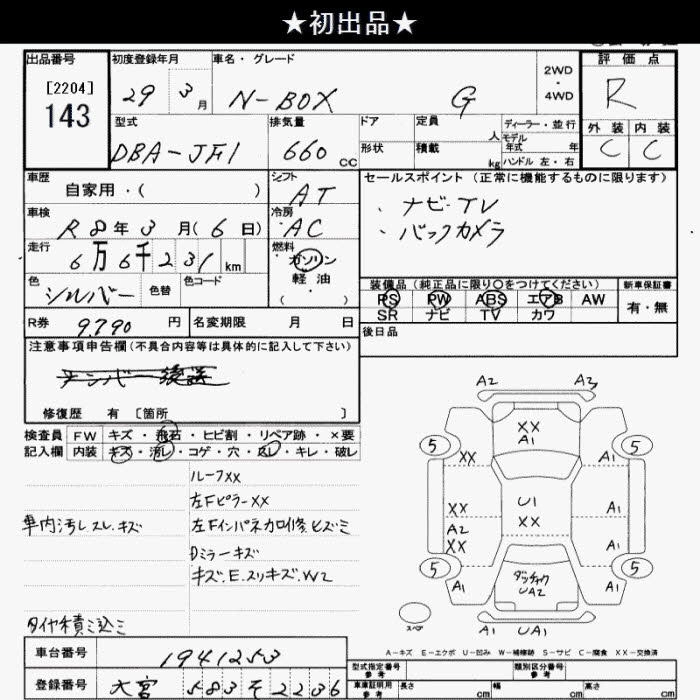 ★初出品★
出品番号
[2204]
143
初度登録年月
29 3月
車名・グレード
N-BOX G
2WD
・
4WD
評価点
R
外装 内装
C C
型式
DBA-JF1
排気量
660 cc
ドア
形状
定員
人
積載
kg
ディーラー・並行
モデル
年式 年
ハンドル 左・右
車歴
自家用・( )
シフト
AT
車検
R8年3月(6日)
冷房
AC
走行
6万6千231km
燃料
ガソリン
・
軽油
( )
色
シルバー
色替
色コード
セールスポイント(正常に機能するものに限ります)
、ナビ・TV
、バックカメラ
装備品(純正品に限り○をつけてください)
PS PW ABS エアB AW
SR ナビ TV カワ
新車保証書
有・無
後日品
R券 9,790 円
名変期限 月 日
注意事項申告欄(不具合内容等は具体的に記入して下さい)
ナンバー後送
修復歴 有 [箇所 ]
検査員
記入欄
FW キズ・飛石・ヒビ割・リペア跡・×要
内装 キズ・汚レ・コゲ・穴・凹レ・キレ・破レ
ルーフXX
左FピラーXX
車内汚レ.スレ.キズ
左Fインパネ加修.ヒズミ
Dミラーキズ
キズ.E.スリキズ.W2
タイヤ積ミ込ミ
A2 A3
XX
A1
5 5
XX A1
U1
XX
XX
A2
XX
A1
A1
5 5
ダッチャク
UA2
A1 A1
スペア
A1 UA1
A-キズ E-エクボ U-凹み W-補修跡 S-サビ C-腐食 XX-交換済
車台番号
1941253
登録番号
大宮 583 そ 2236
型式指定番号
参考
類別区分番号
参考
車庫証明用
参考
長さ cm
幅 cm
高さ cm